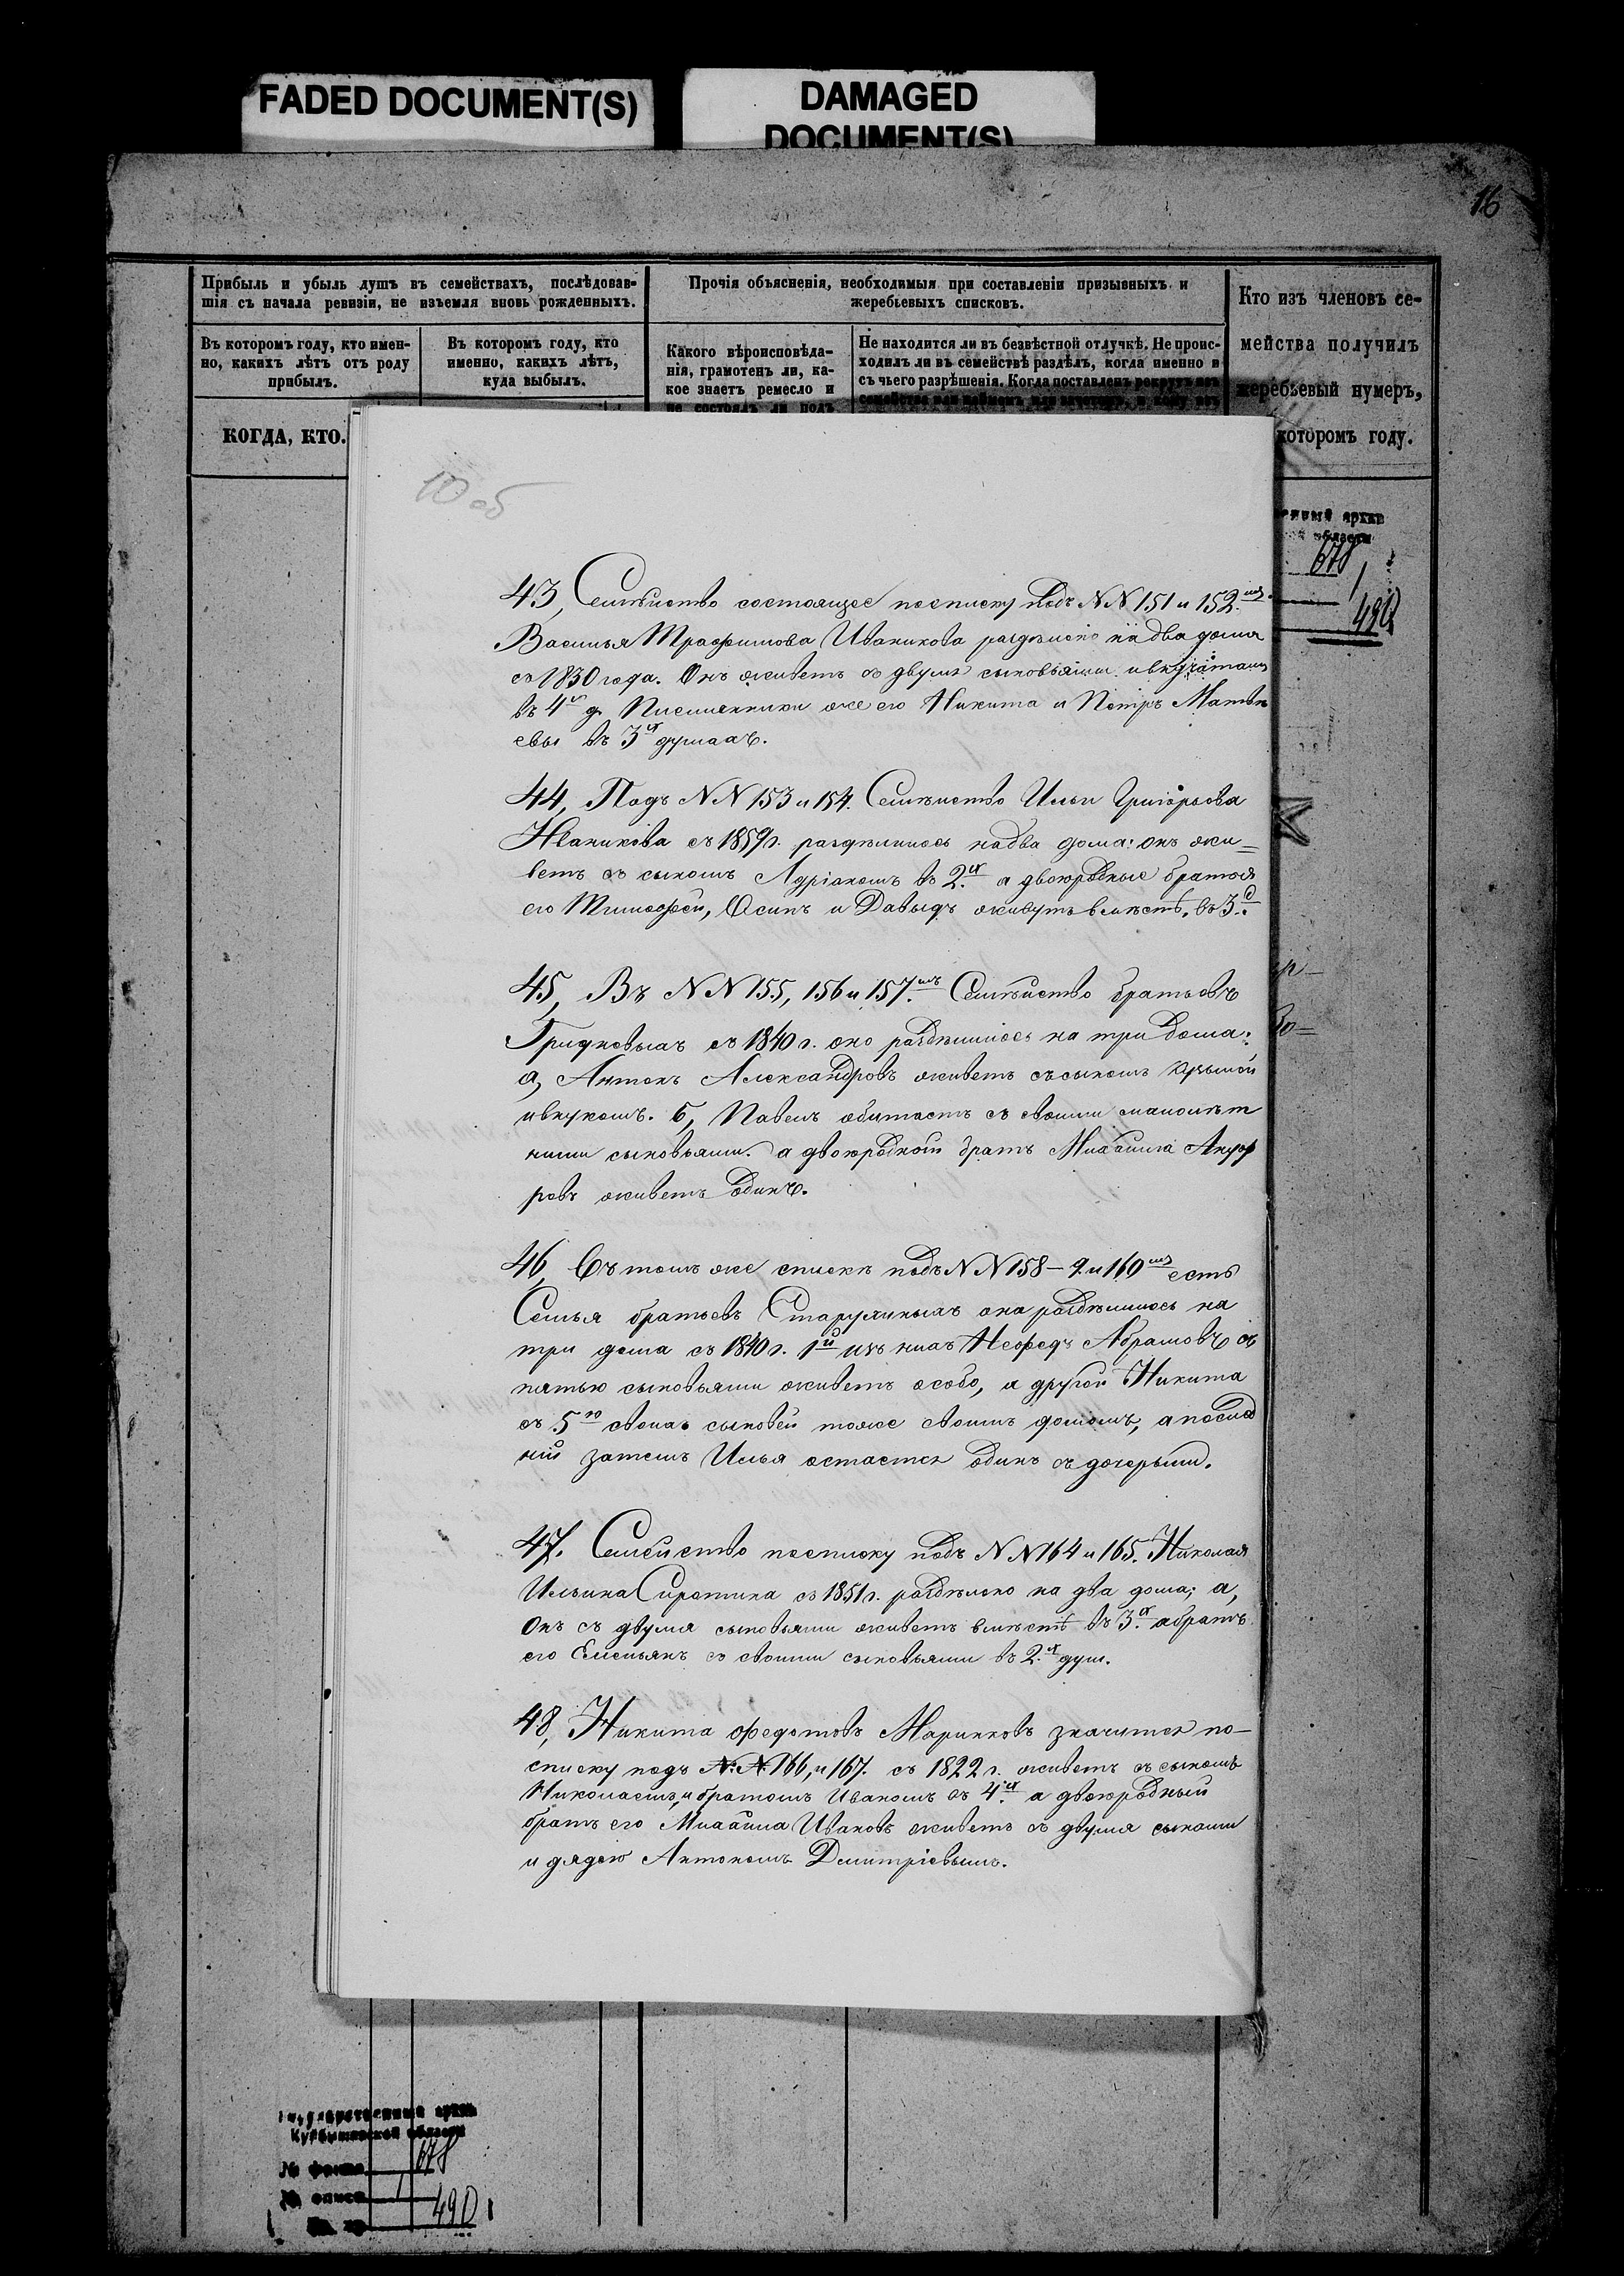 FADED DOCUMENT(S)
DAMAGED
DOCUMENT(S)
16
Прибыль и убыль душъ въ семействахъ, послѣдовав-
шія съ начала ревизіи, не изъемля вновь рожденныхъ.
Прочія объясненія, необходимыя при составленіи призывныхъ и
жеребьевыхъ списковъ.
Кто изъ членовъ се-
мейства получилъ
жеребьевый нумеръ,
которомъ году.
Въ которомъ году, кто имен-
но, какихъ лѣтъ отъ роду
прибылъ.
Въ которомъ году, кто
именно, какихъ лѣтъ,
куда выбылъ.
Какого вѣроисповѣда-
нія, грамотенъ ли, ка-
кое знаетъ ремесло и
не состоялъ ли подъ
Не находится ли въ безвѣстной отлучкѣ. Не проис-
ходилъ ли въ семействѣ раздѣлъ, когда именно и
съ чьего разрѣшенія. Когда поставленъ рекрутъ изъ
КОГДА, КТО.
10 об
678
1
490
43, Семѣйство состоящее посписку подъ NN 151 и 152.мъ
Василья Трафимова Иваникова раздѣлено на два дома
съ 1830 года. Онъ живетъ съ двумя сыновьями и внучатами
въ 4х д. Писмянники же его Никита и Петръ Матвѣ
евы въ 3х душахъ.
44, Подъ NN 153 и 154. Семѣйство Ильи Григорьева
Иваникова съ 1859 г. раздѣлилось на два дома: онъ жи=
ветъ съ сыномъ Адріаномъ въ 2.х а двоюродные братья
его Тимофей, Осипъ и Давыдъ живутъ вмѣстѣ, въ 3.
45, Въ NN 155, 156 и 157.мъ Семѣйство братьевъ
Гридневыхъ съ 1840 г. оно раздѣлилось на три дома:
а, Антонъ Александровъ живетъ съ сыномъ Кузьмой
и внукомъ. б, Павелъ обитаетъ съ своими малолѣт
ними сыновьями. а двоюродной братъ Михайла
ровъ живетъ одинъ.
46, Въ томъ же спискѣ подъ NN 158 – 9. и 160мъ есть
Семья братьевъ она раздѣлилась на
три дома съ 1840 г. 1й изъ нихъ Нефедъ Абрамовъ съ
пятью сыновьями живетъ особо, а другой Никита
съ 5ю своихъ сыновей тоже своимъ домомъ, а послѣд
ній затемъ Илья остается одинъ съ дочерьми.
47. Семейство посписку подъ NN 164 и 165. Николая
Ильина Сиротина съ 1851 г. раздѣлено на два дома; а,
Онъ съ двумя сыновьями живетъ вмѣстѣ въ 3.х а братъ
его Емельянъ съ своими сыновьями въ 2.х душ.
48, Никита Федотовъ Маринковъ значится по-
списку подъ N: N: 166, и 167. съ 1822 г. живетъ съ сыномъ
Николаемъ, и братомъ Иваномъ въ 4.х а двоюродный
братъ его Михайла Ивановъ живетъ съ двумя сынами
и дядею Антономъ Дмитріевымъ.
Государственный архив
Куйбышевской области
№ фонда 678
№ описи 1
490